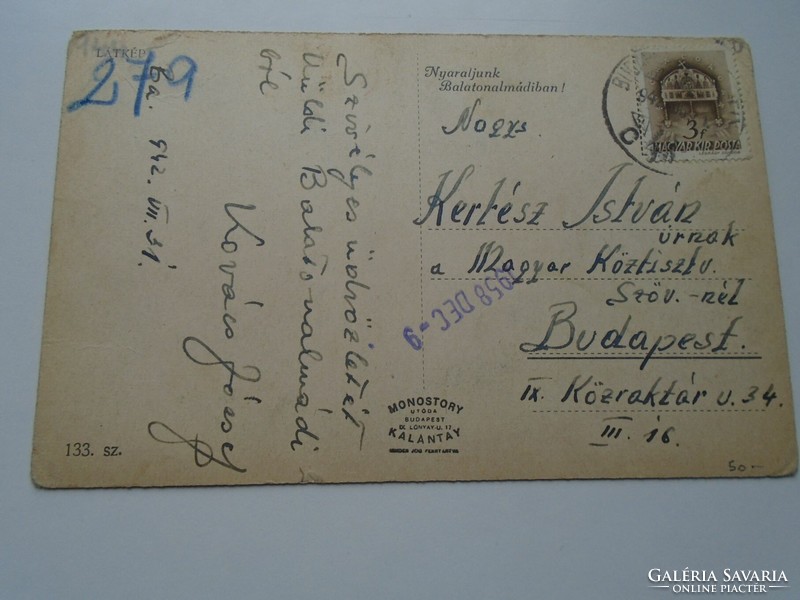 LÁTKÉP
279
Ba. 942. VII. 31.
Szívélyes üdvözletét
küldi Balatonalmádi
ból
Kovács József
133. sz.
Nyaraljunk
Balatonalmádiban!
3f
MAGYAR KIR. POSTA
Nagys.
Kertész István
úrnak
a Magyar Köztisztv.
Szöv.-nél
Budapest.
IX. Közraktár u. 34.
III. 16.
1958 DEC -9
MONOSTORY
UTÓDA
BUDAPEST
IX. LÓNYAY-U. 17
KALANTAY
MINDEN JOG FENNTARTVA
50-
GALÉRIA SAVARIA
ONLINE PIACTÉR